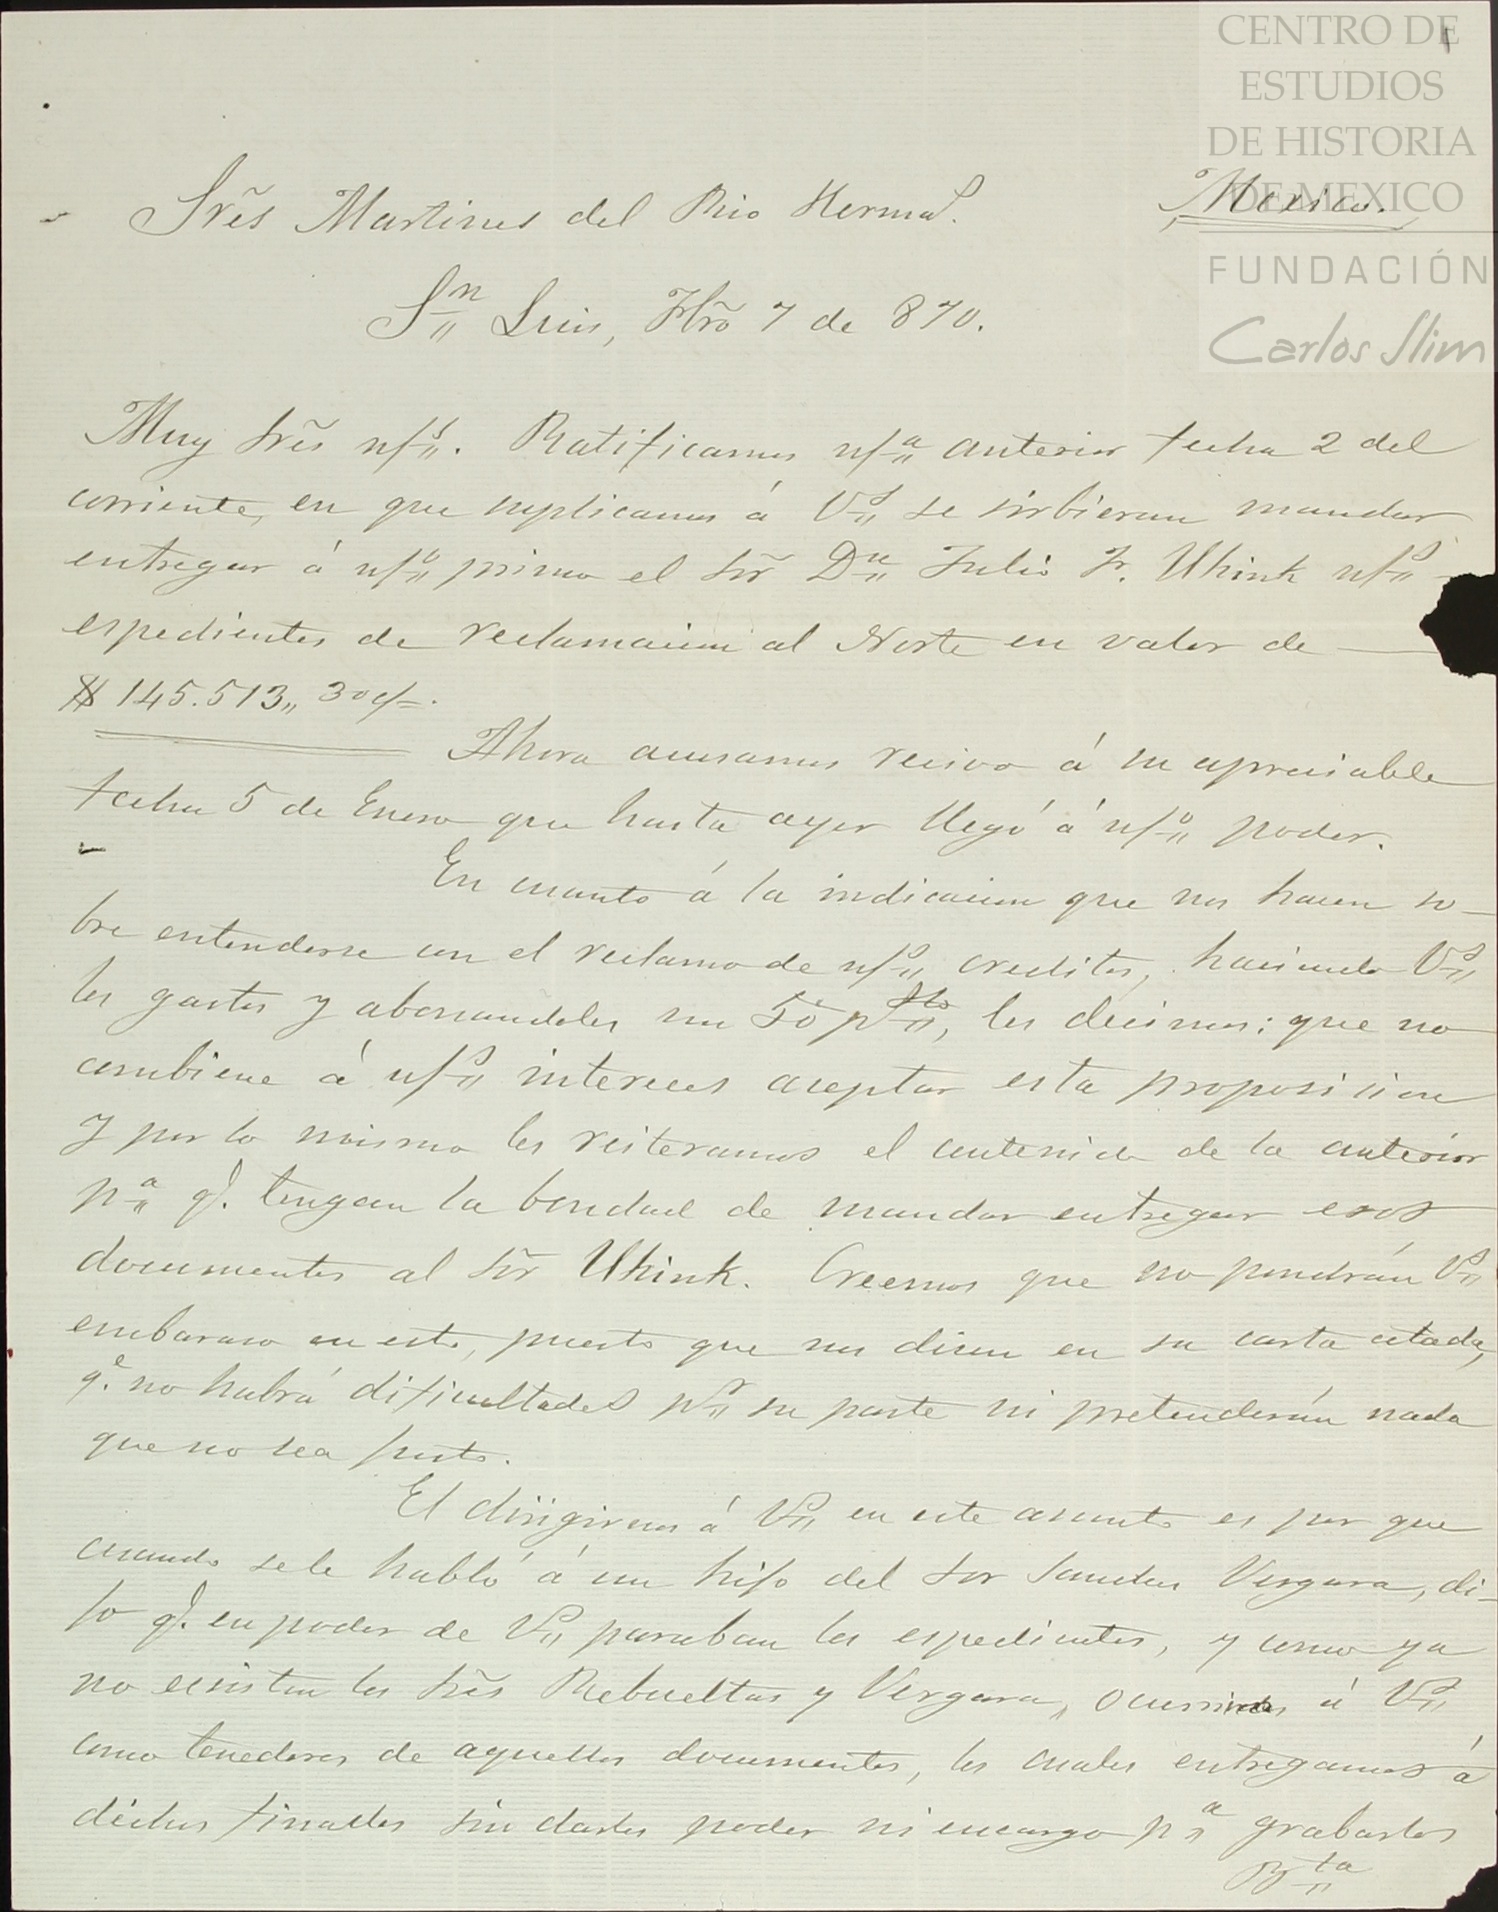 CENTRO DE
ESTUDIOS
DE HISTORIA
DE MEXICO
FUNDACIÓN
Carlos Slim
Srẽs Martines del Rio Herms. Mexico.
Sn Luis, Hbrõ 7 de 870.
Muy Srẽs n/s. Ratificamos n/a anterior fecha 2 del
corriente, en que suplicamos á Vs se sirbieran mandar
entregar á n/o primo el Sr̃ Dn Julio Fr. Uhink n/s
espedientes de reclamacion al Norte en valor de
$ 145.513,, 30 c/.
Ahora acusamos recivo á su apreciable
fecha 5 de Enero que hasta ayer llegó á n/o poder.
En cuanto á la indicacion que nos hacen so-
bre entenderse con el reclamo de n/s creditos, haciendo Vs
los gastos y abonandoles un 50 p%, les decimos: que no
combiene á n/s intereces aceptar esta proposicion
y por lo mismo les reiteramos el contenido de la anterior
pa q. tengan la bondad de mandar entregar esos
documentos al Sr̃ Uhink. Creemos que no pondrán Vs
embaraso en esto, puesto que nos dicen en su carta citada,
qe. no habrá dificultades pr su parte ni pretenderán nada
que no sea justo.
El dirigirnos á Vs en este asunto es por que
cuando se le habló á un hijo del Sor Sanches Vergara, di-
jo q. en poder de Vs paraban los espedientes, y como ya
no ecsisten los Srẽs Rebueltas y Vergara, ocurrimos á Vs
como tenedores de aquellos documentos, los cuales entregamos á
dichos finados sin darles poder ni encargo pa grabarlos
Bta